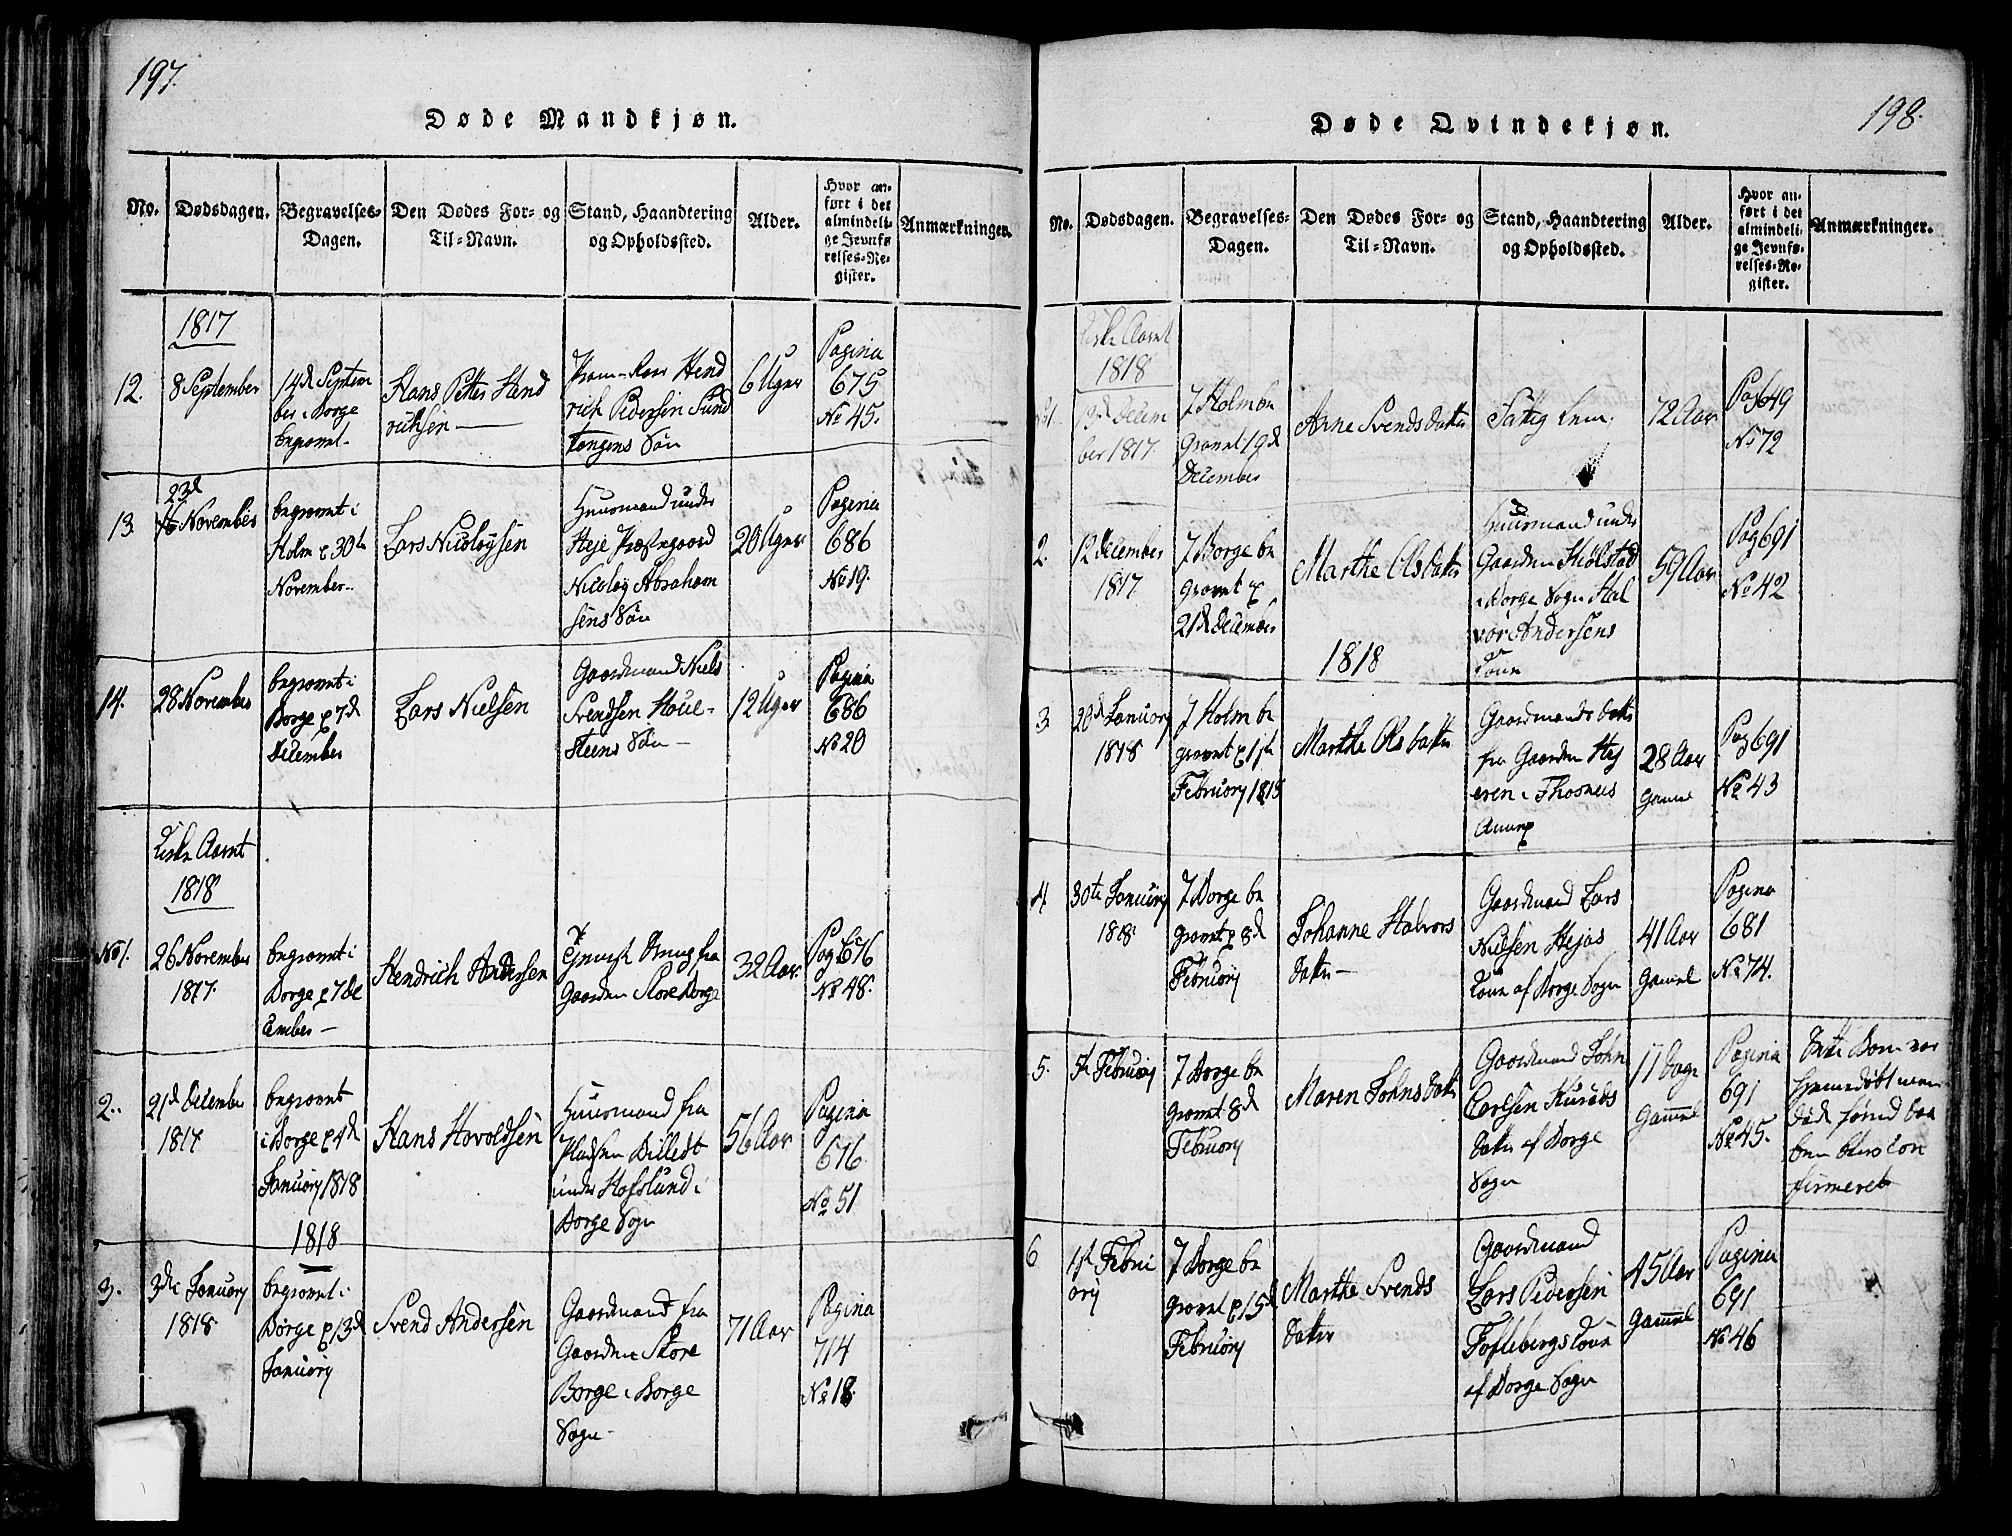 197.
Døde Mandkjøn.
No.
Dødsdagen.
Begravelses-
Dagen.
Den Dødes For- og
Til-Navn.
Stand, Haandtering
og Opholdssted.
Alder.
Hvor an-
ført i det
almindeli-
ge Jevnfø-
relses-Re-
gister.
Anmærkninger.
1817
12.
8 September
14d Septem
ber i Borge
begravet
Hans Petter Hend
richsen
Hend
rich Pedersen Sund
Tangens Søn
6 Uger
Pagina
675
No 45.
13
23d
November
begravet i
Holm 30te
November
Lars Nicolaysen
Huusmand under
Heje Præstegaard
Nicolay Abraham
sens Søn
20 Uger
Pagina
686
No 19.
14.
28 November
begravet i
Borge 7d
December
Lars Nielsen
Gaardmand Niels
Svendsen Houe-
steens Søn
12 Uger
Pagina
686
No 20
Kirke Aaret
1818
No 1.
26 November
1817.
begravet i
Borge 7 De
cember
Hendrich Andersen
fra
Gaarden Store Borge
32 Aar
Pag 676
No 48.
2.
21d December
1817
begravet
i Borge 4d
January 1818
Hans Hovoldsen
Huusmand fra
Pladsen Billedt
under Hafslund i
Borge Sogn
56 Aar
Pagina
676
No 51
1818
3.
3die January
1818
begravet i
Borge 13d
January
Svend Andersen
Gaardmand fra
Gaarden Store
Borge i Borge
Sogn
71 Aar
Pagina
714
No 18
198.
Døde Qvindekjøn.
No.
Dødsdagen.
Begravelses-
Dagen.
Den Dødes For- og
Til-Navn.
Stand, Haandtering
og Opholdssted.
Alder.
Hvor an-
ført i det
almindeli-
ge Jevnfø-
relses-Re-
gister.
Anmærkninger.
Kirke Aaret
1818
1.
13d Decem
ber 1817.
I Holm be
gravet 19d
December
Arne Svends Datter
Fattig Lem
72 Aar
Pag 649
No 72
2.
12 December
1817
I Borge be
gravet
21d December
Marthe Ols Datter
Huusmand under
Gaarden Skiølstad
i Borge Sogn Hal
vor Andersens
Kone
59 Aar
Pag 691
No 42
1818
3
20d January
1818
I Holm be
gravet 1ste
February 1818
Marthe Ols Datter
Gaardmands Datter
fra Gaarden Hey
eren i Thosnes
Annex
28 Aar
Gammel
Pag 691
No 43
4
30te January
1818
I Borge be
gravet 8d
February
Johanne Halvors
Datter
Gaardmand Lars
Nielsen Hejas
Kone af Borge Sogn
41 Aar
Gammel
Pagina
681
No 74.
5.
5te February
I Borge be
gravet 8d
February
Maren Johns Datter
Gaardmand John
Carlsen
Datter af Borge
Sogn
11 Dage
Gammel
Pagina
691
No 45.
Dette Barn var
hjemmedøbt men
døde førend Daa
ben blev con
firmeret
6
1ste Febru
ary
I Borge be
gravet 15d
February
Marthe Svends
Datter
Gaardmand
Lars Pedersen
Toflebergs Kone
af Borge Sogn
45 Aar
Gammel
Pagina
691
No 46